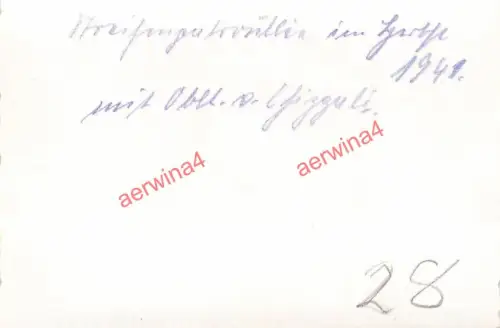 Streifenpatrouille im Herbst
1941.
mit Oblt. v.
aerwina4
aerwina4
28